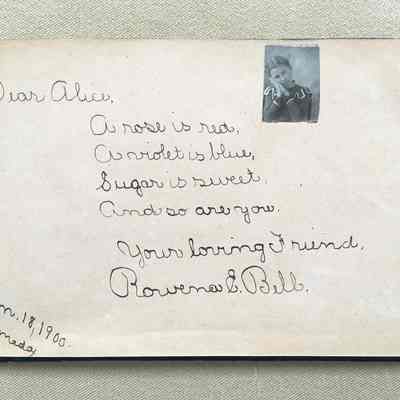 Dear Alice,
A rose is red,
A violet is blue,
Sugar is sweet,
And so are you.
Your loving Friend,
Rowena E. Bell.
18, 1900.